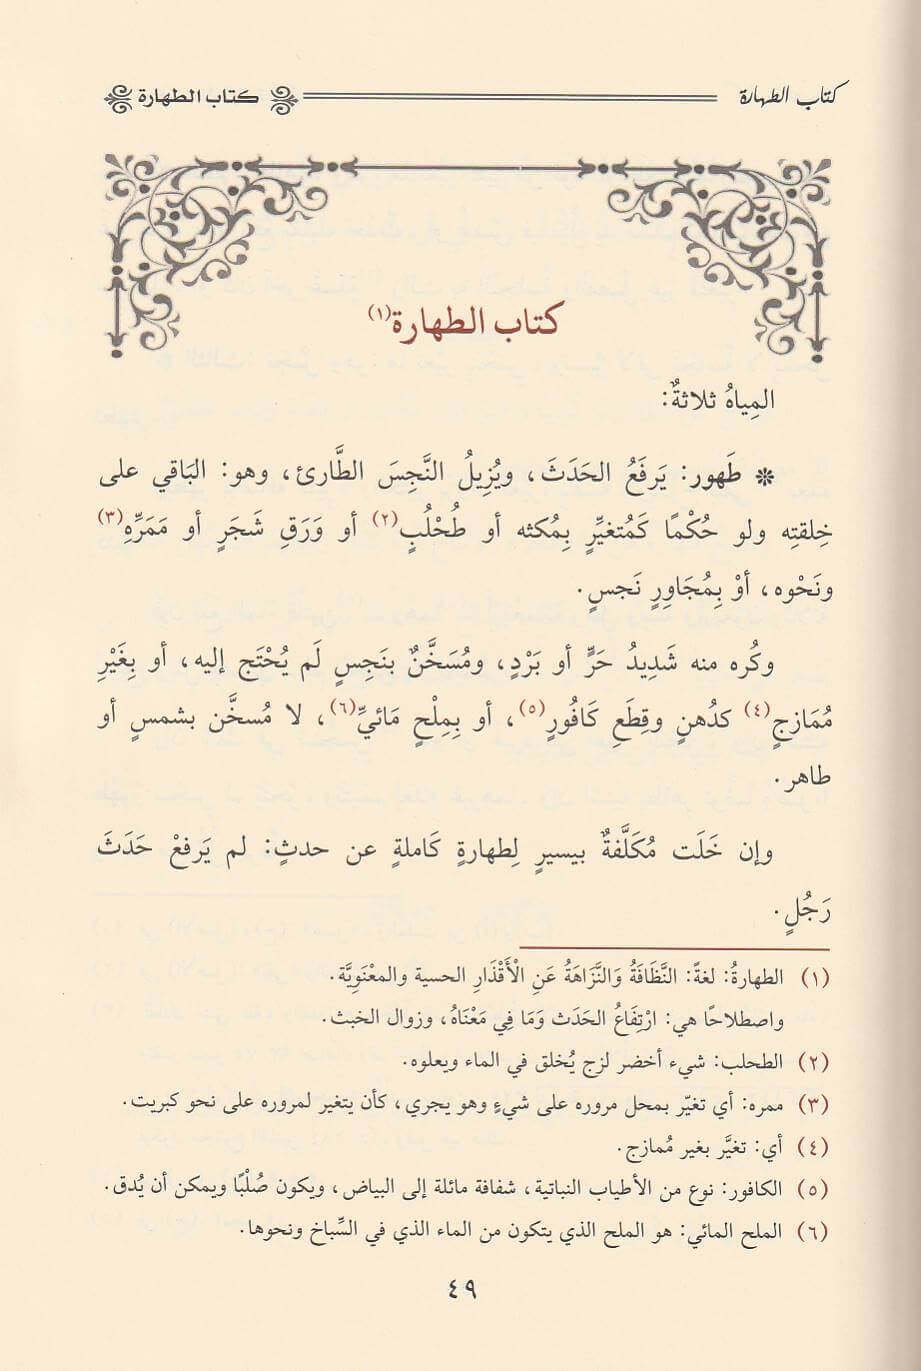 كتاب الطهارة
كتاب الطهارة
كتاب الطهارة(١)
المِياهُ ثلاثةٌ:
* طَهور: يَرفَعُ الحَدَثَ، ويُزِيلُ النَّجِسَ الطَّارئ، وهو: البَاقي على
خِلقتِه ولو حُكْمًا كَمُتغيِّرٍ بِمُكثه أو طُحْلُبٍ(٢) أو وَرَقِ شَجَرٍ أو مَمَرِّهِ(٣)
ونَحْوه، أوْ بِمُجَاوِرٍ نَجسٍ.
وكُره منه شَدِيدُ حَرٍّ أو بَرْدٍ، ومُسَخَّنٌ بنَجِسٍ لَم يُحْتَج إليه، أو بِغَيْرِ
مُمَازجٍ(٤) كدُهنٍ وقِطَعِ كَافُورٍ(٥)، أو بِمِلْحٍ مَائيٍّ(٦)، لا مُسخَّن بشمسٍ أو
طاهر.
وإن خَلَت مُكَلَّفةٌ بيسيرٍ لِطهارةٍ كَاملةٍ عن حدثٍ: لم يَرفعْ حَدَثَ
رَجُلٍ.
(١) الطهارةُ: لغةً: النَّظَافَةُ وَالنَّزَاهَةُ عَنِ الْأَقْذَارِ الحسية والمعْنَوِيَّة.
واصطلاحًا هي: ارْتِفَاعُ الحَدَث وَمَا فِي مَعْنَاهُ، وزوال الخبث.
(٢) الطحلب: شيء أخضر لزج يُخلق في الماء ويعلوه.
(٣) ممره: أي تغيّر بمحل مروره على شيءٍ وهو يجري، كأن يتغير لمروره على نحو كبريت.
(٤) أي: تغيَّر بغير مُمازج.
(٥) الكافور: نوع من الأطياب النباتية، شفافة مائلة إلى البياض، ويكون صُلْبًا ويمكن أن يُدق.
(٦) الملح المائي: هو الملح الذي يتكون من الماء الذي في السِّباخ ونحوها.
٤٩